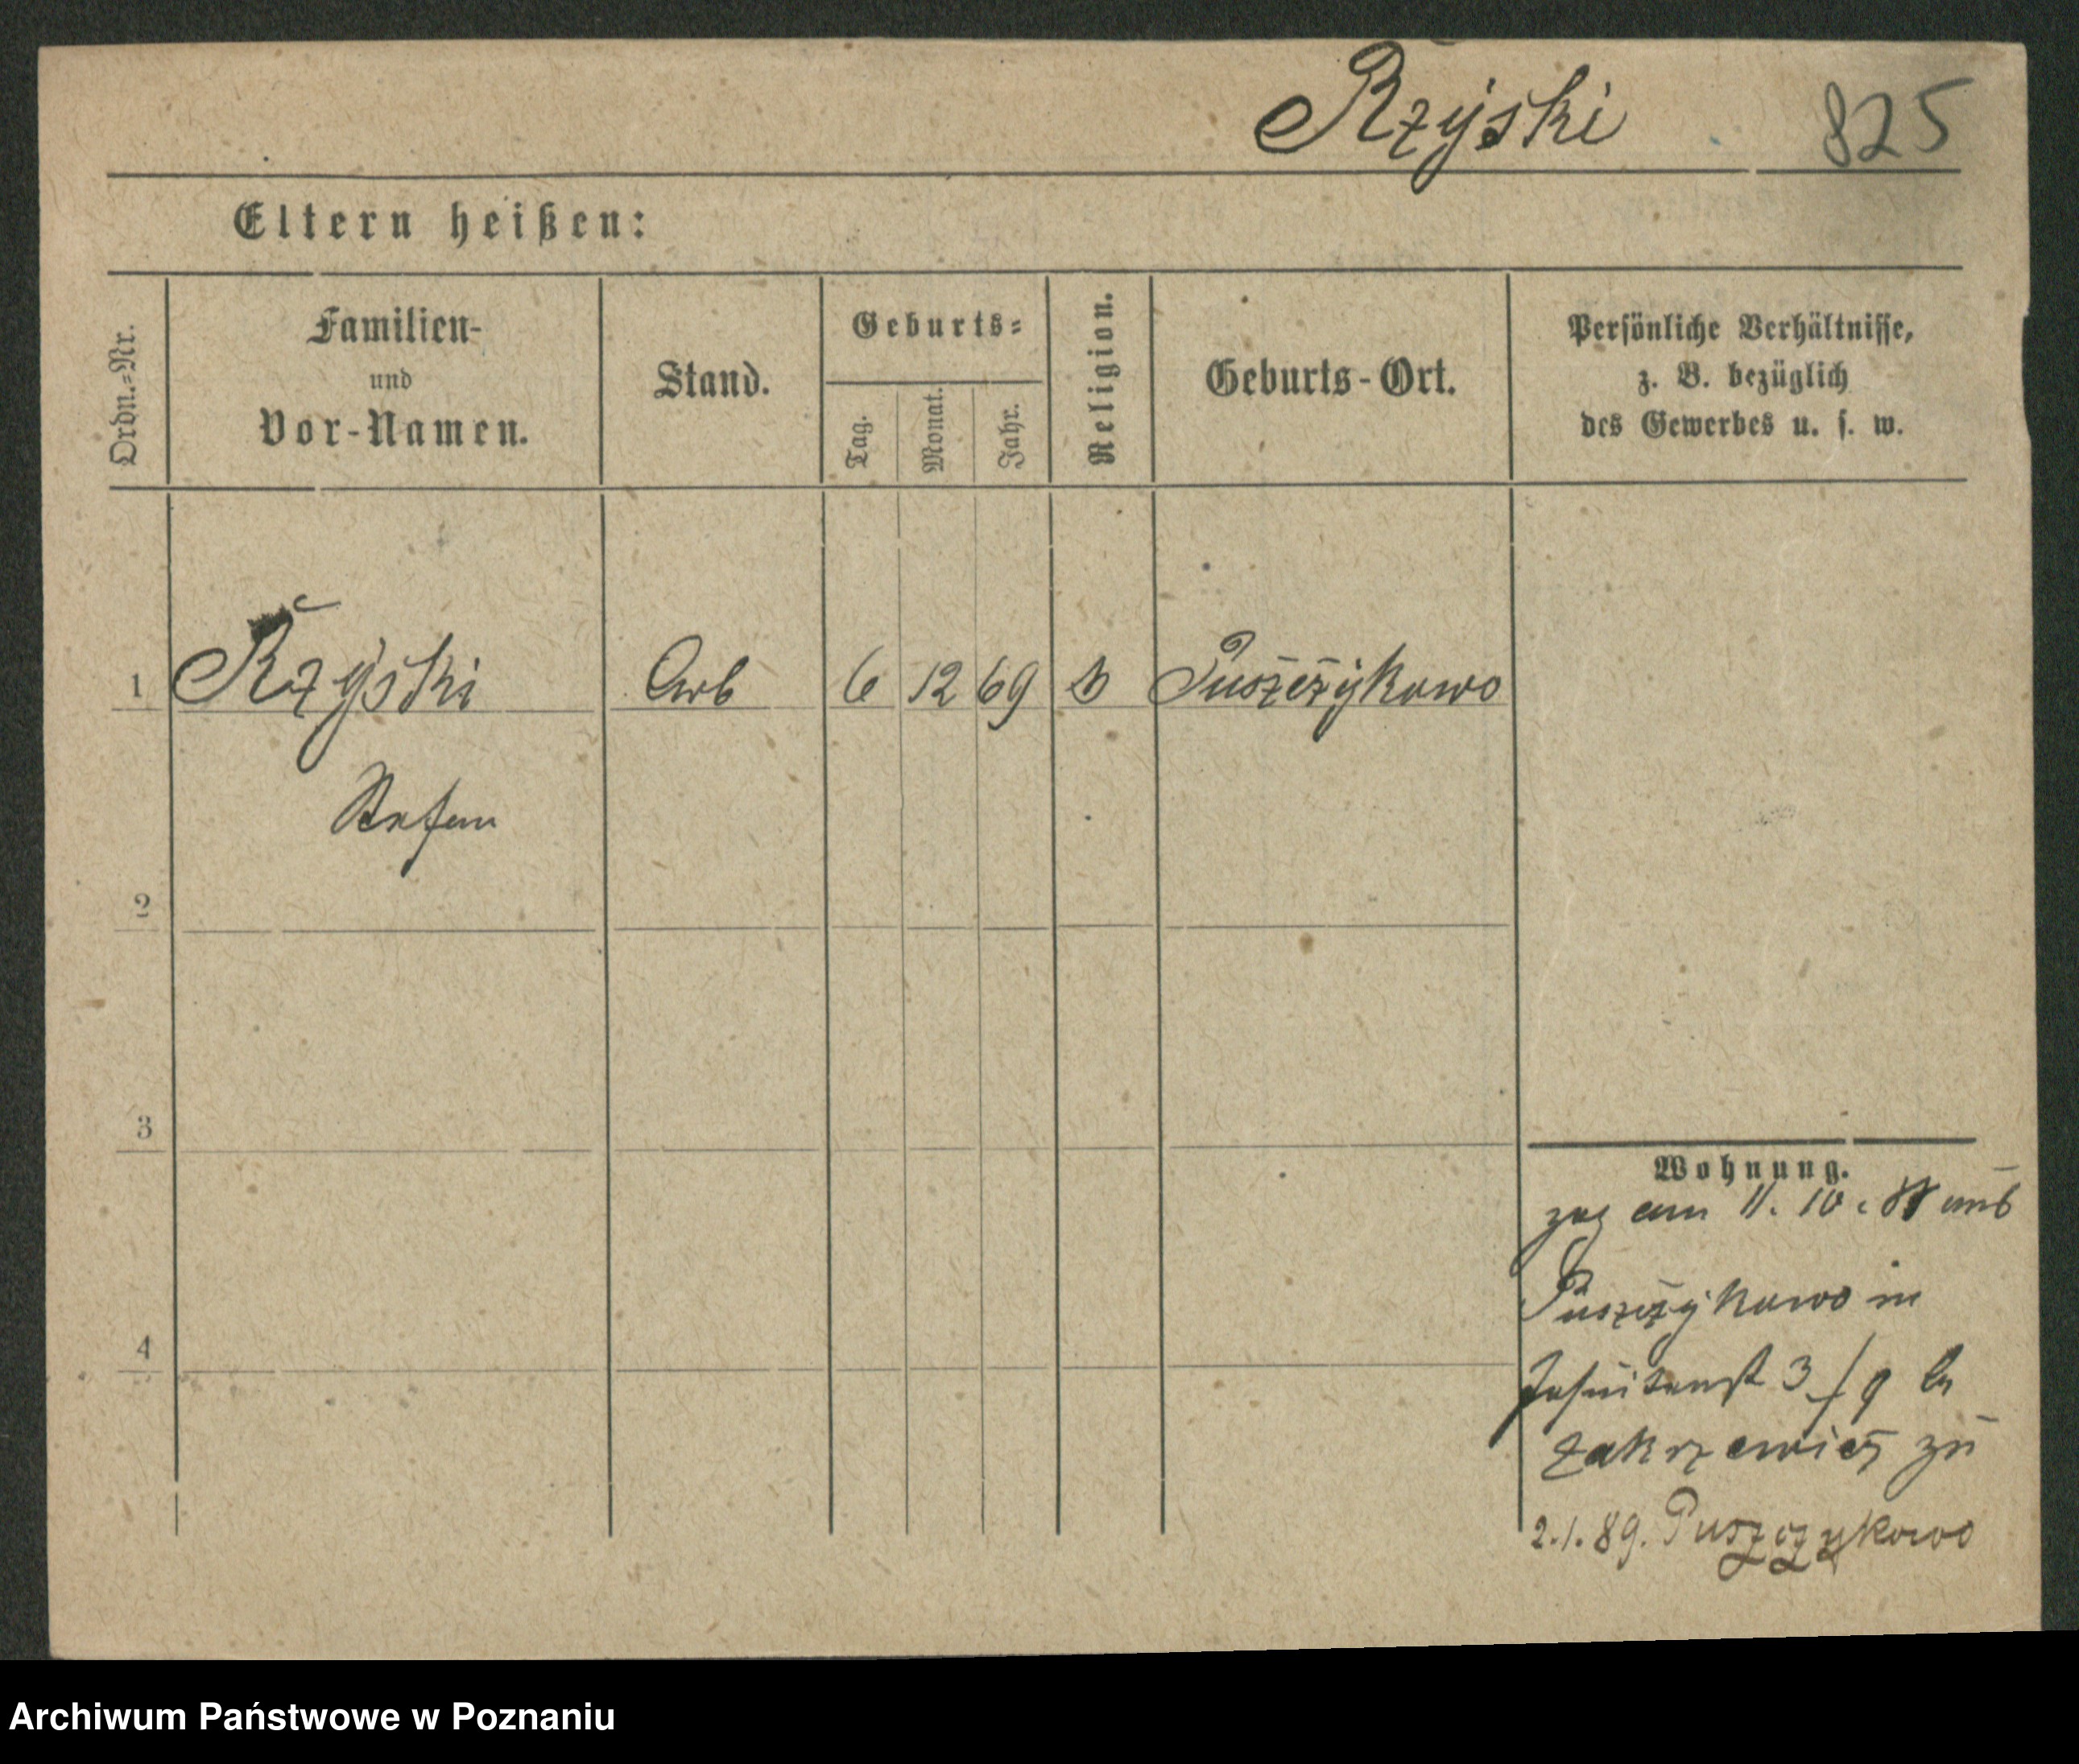 Rzyski 825
Eltern heißen:
Ordn.=Nr.
Familien-
und
Vor-Namen.
Stand.
Geburts=
Tag.
Monat.
Jahr.
Religion.
Geburts-Ort.
Persönliche Verhältnisse,
z. B. bezüglich
des Gewerbes u. s. w.
1 Rzyski Arb 6 12 69 Puszczykowo
Stefan
2
3
4
Wohnung.
zog am 11. 10.
Puszczykowo in
Jesuitenst 3/9 bei
Zakrzewicz zu
2.1.89. Puszczykowo
Archiwum Państwowe w Poznaniu